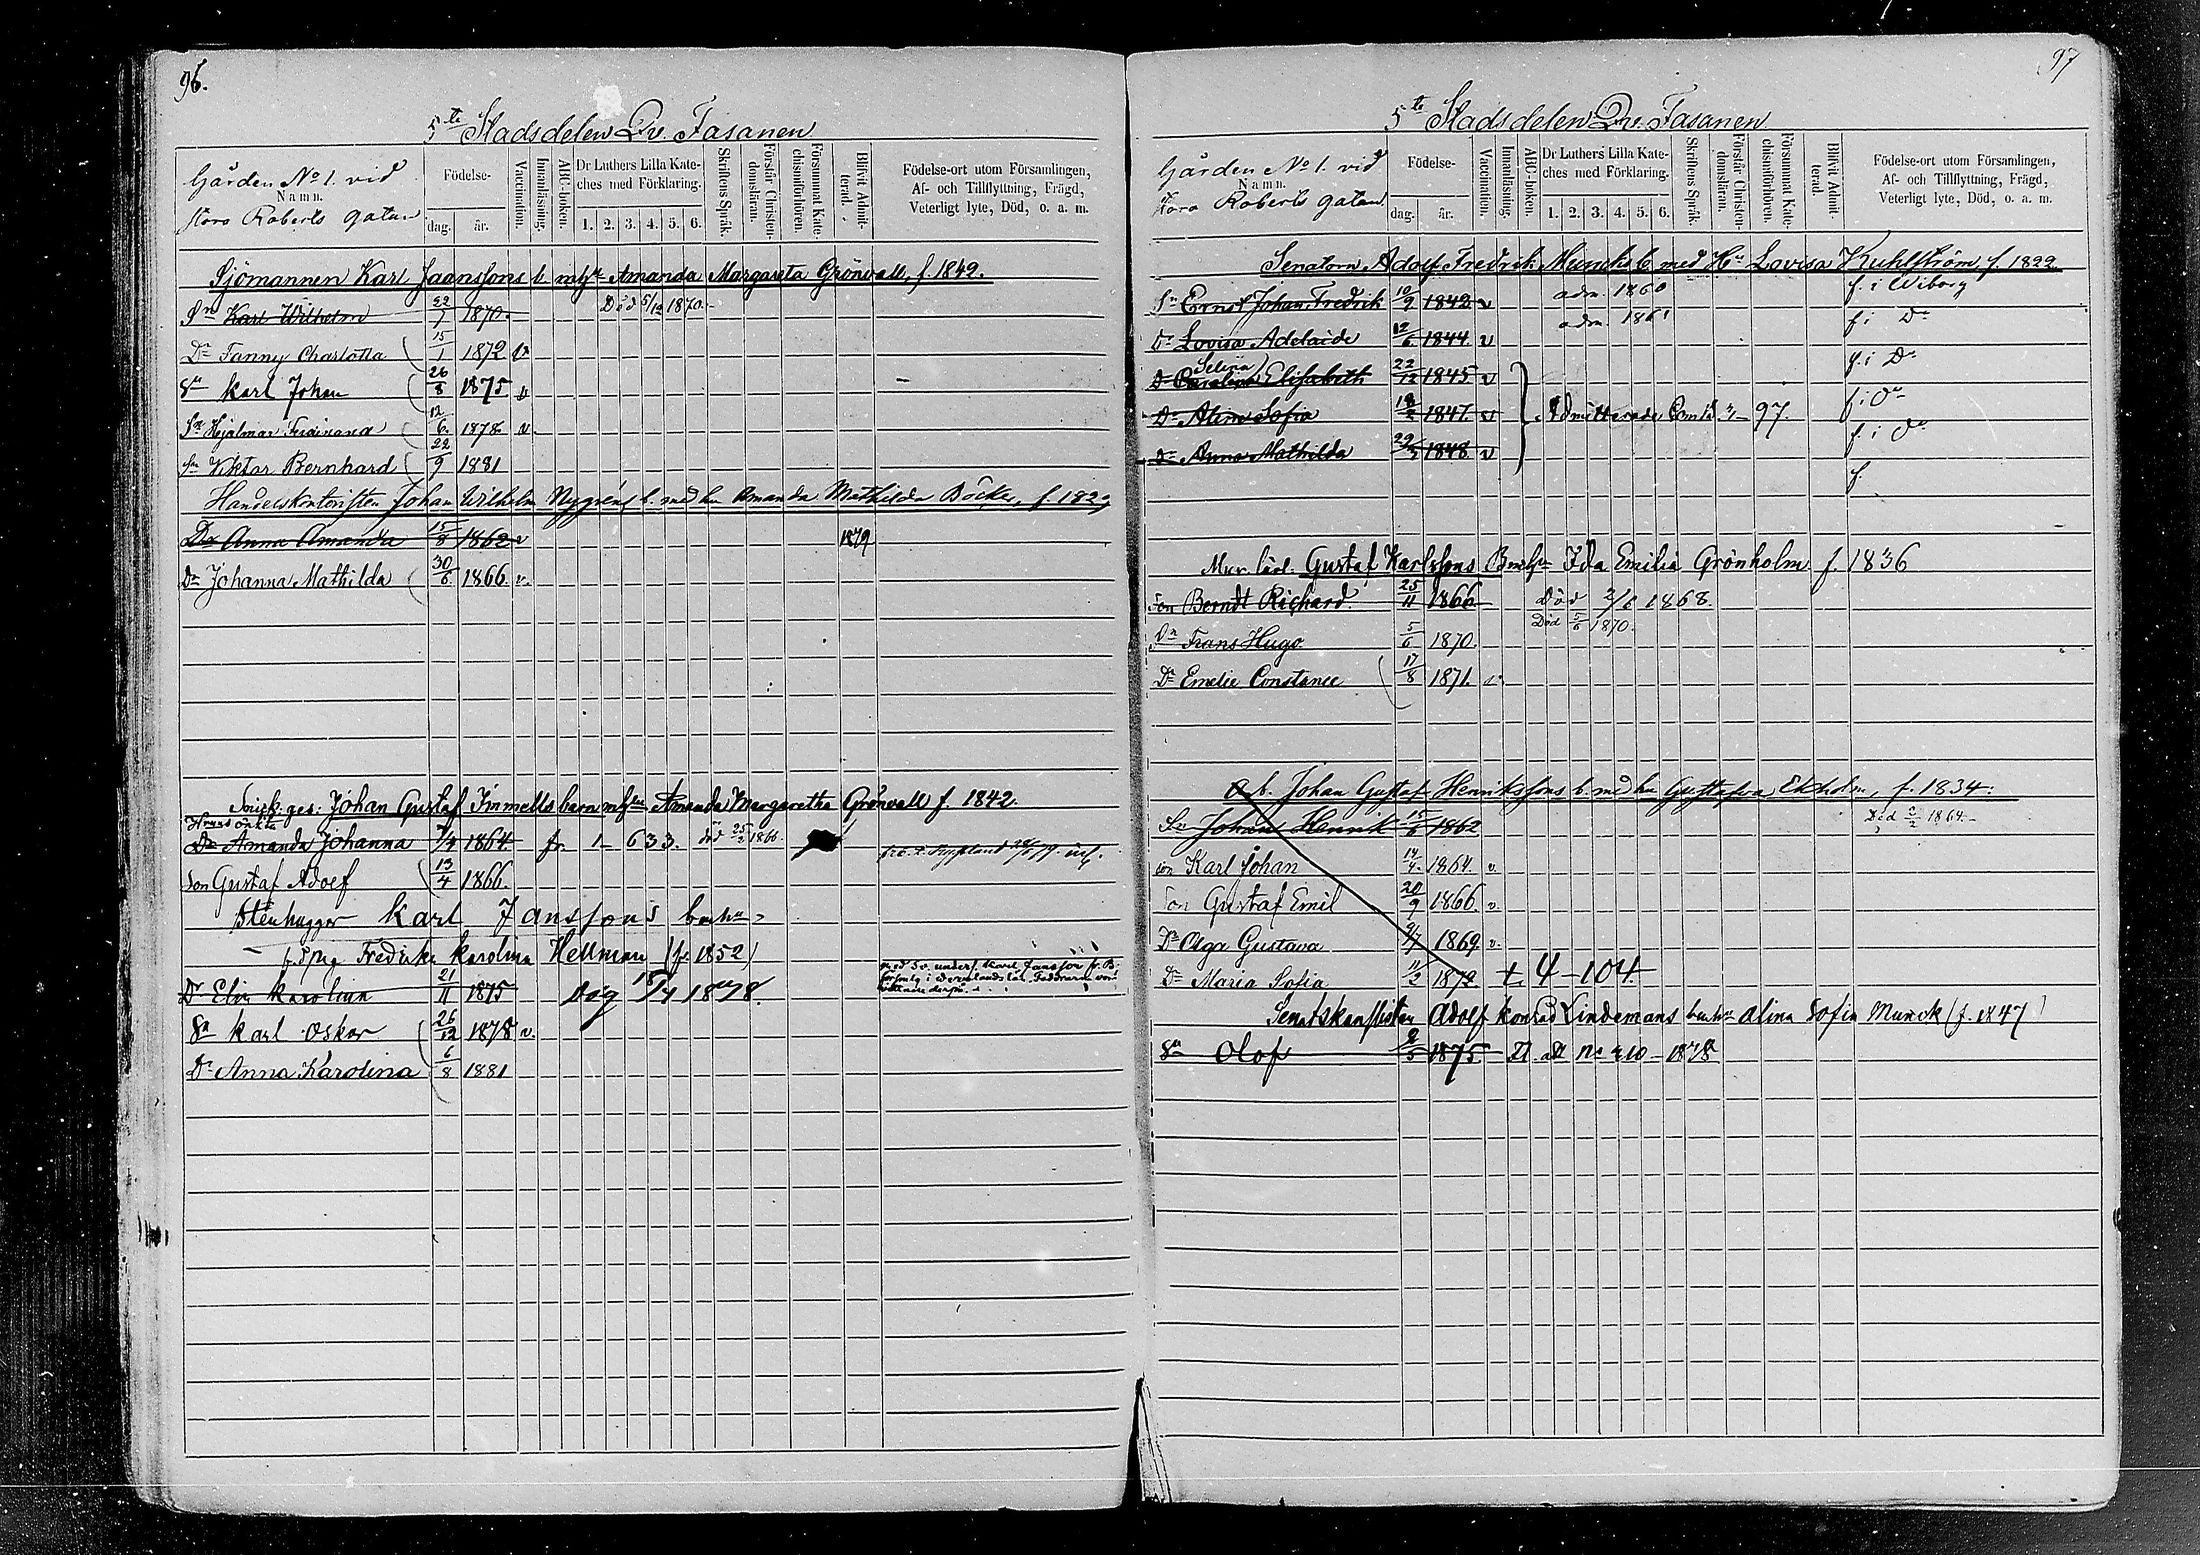 96.
5te Stadsdelen Qv. Fasanen
Gården No 1. vid
Namn.
Stora Roberts gatan
Födelse-
dag.
år.
Vaccination.
Innanläsning.
ABC-boken.
Dr Luthers Lilla Kate-
ches med Förklaring.
1. 2. 3. 4. 5. 6.
Skriftens Språk.
Förstår Christen-
domsläran.
Försummat Kate-
chismiförhören.
Blifvit Admit-
terad.
Födelse-ort utom Församlingen,
Af- och Tillflyttning, Frägd,
Veterligt lyte, Död, o. a. m.
Sjömannen Karl Jaanssons b. m hu Amanda Margareta Grönvall, f. 1842.
Sn Karl Wilhelm 22/7 1870. Död 5/12 1870.
Dr Fanny Charlotta 15/1 1872 v
Sn Karl Johan 26/8 1875 v
Sn Hjalmar Ferdinand 12/6 1878 v.
Sn Viktor Bernhard 22/9 1881
Handelskontoristen Johan Wilhelm Nygréns b. med hu Amanda Mathilda Böcker, f. 1829
Dr Anna Amanda 15/8 1862 v 1879
Dr Johanna Mathilda 30/6 1866 v.
Snick. ges: Johan Gustaf Immells barn m hu Amanda Margaretha Grönvall f. 1842.
Hrus oäkta
Dr Amanda Johanna 1/4 1864 fr. 1– 633. död 25/2 1866.
Son Gustaf Adolf 13/4 1866.
Stenhugger Karl Janssons b m hu
f. Spig Fredrika Karolina Hellman (f. 1852)
Dr Elin Karolina 21/11 1875 Dög 15/4 1878.
Sn Karl Oskar 26/12 1878 v.
Dr Anna Karolina 6/8 1881
97
5te Stadsdelen Qv. Fasanen
Gården No 1. vid
Namn.
Stora Roberts gatan
Födelse-
dag.
år.
Vaccination.
Innanläsning.
ABC-boken.
Dr Luthers Lilla Kate-
ches med Förklaring.
1. 2. 3. 4. 5. 6.
Skriftens Språk.
Förstår Christen-
domsläran.
Försummat Kate-
chismiförhören.
Blifvit Admit-
terad.
Födelse-ort utom Församlingen,
Af- och Tillflyttning, Frägd,
Veterligt lyte, Död, o. a. m.
Senatorn Adolf Fredrik Muncks b. med Hu Lovisa Kuhlström f. 1822
Sn Ernst Johan Fredrik 10/9 1842 v adm. 1860 f. i Wiborg
Dr Lovisa Adelaide 12/6 1844 v adm. 1861 f. i Do
Selina
Dr Carolina Elisabeth 22/12 1845 v f. i Do
Dr Alina Sofia 18/2 1847 v Admitterade 97. f. i Do
Dr Anna Mathilda 1848 v f. i Do
f.
Mur. lärl. Gustaf Karlssons B m hu Ida Emilia Grönholm f. 1836
Son Berndt Richard 25/11 1866 Död 2/6 1868.
Sn Frans Hugo 5/6 1870. Död 5/6 1870.
Dr Emelie Constance 17/8 1871. v.
Johan Gustaf Henrikssons b. med hu Gustafva Ekholm, f. 1834:
Sn Johan Henrik 15/6 1862 Död 2/2 1864
Son Karl Johan 14/4 1864. v.
Son Gustaf Emil 20/9 1866. v.
Dr Olga Gustava 1869. v.
Dr Maria Sofia 11/2 1872 t. 4–104
Senatskanslisten Adolf Konrad Lindemans b m hu Alina Sofia Munck (f. 1847)
Sn Olof 2/5 1875 1878